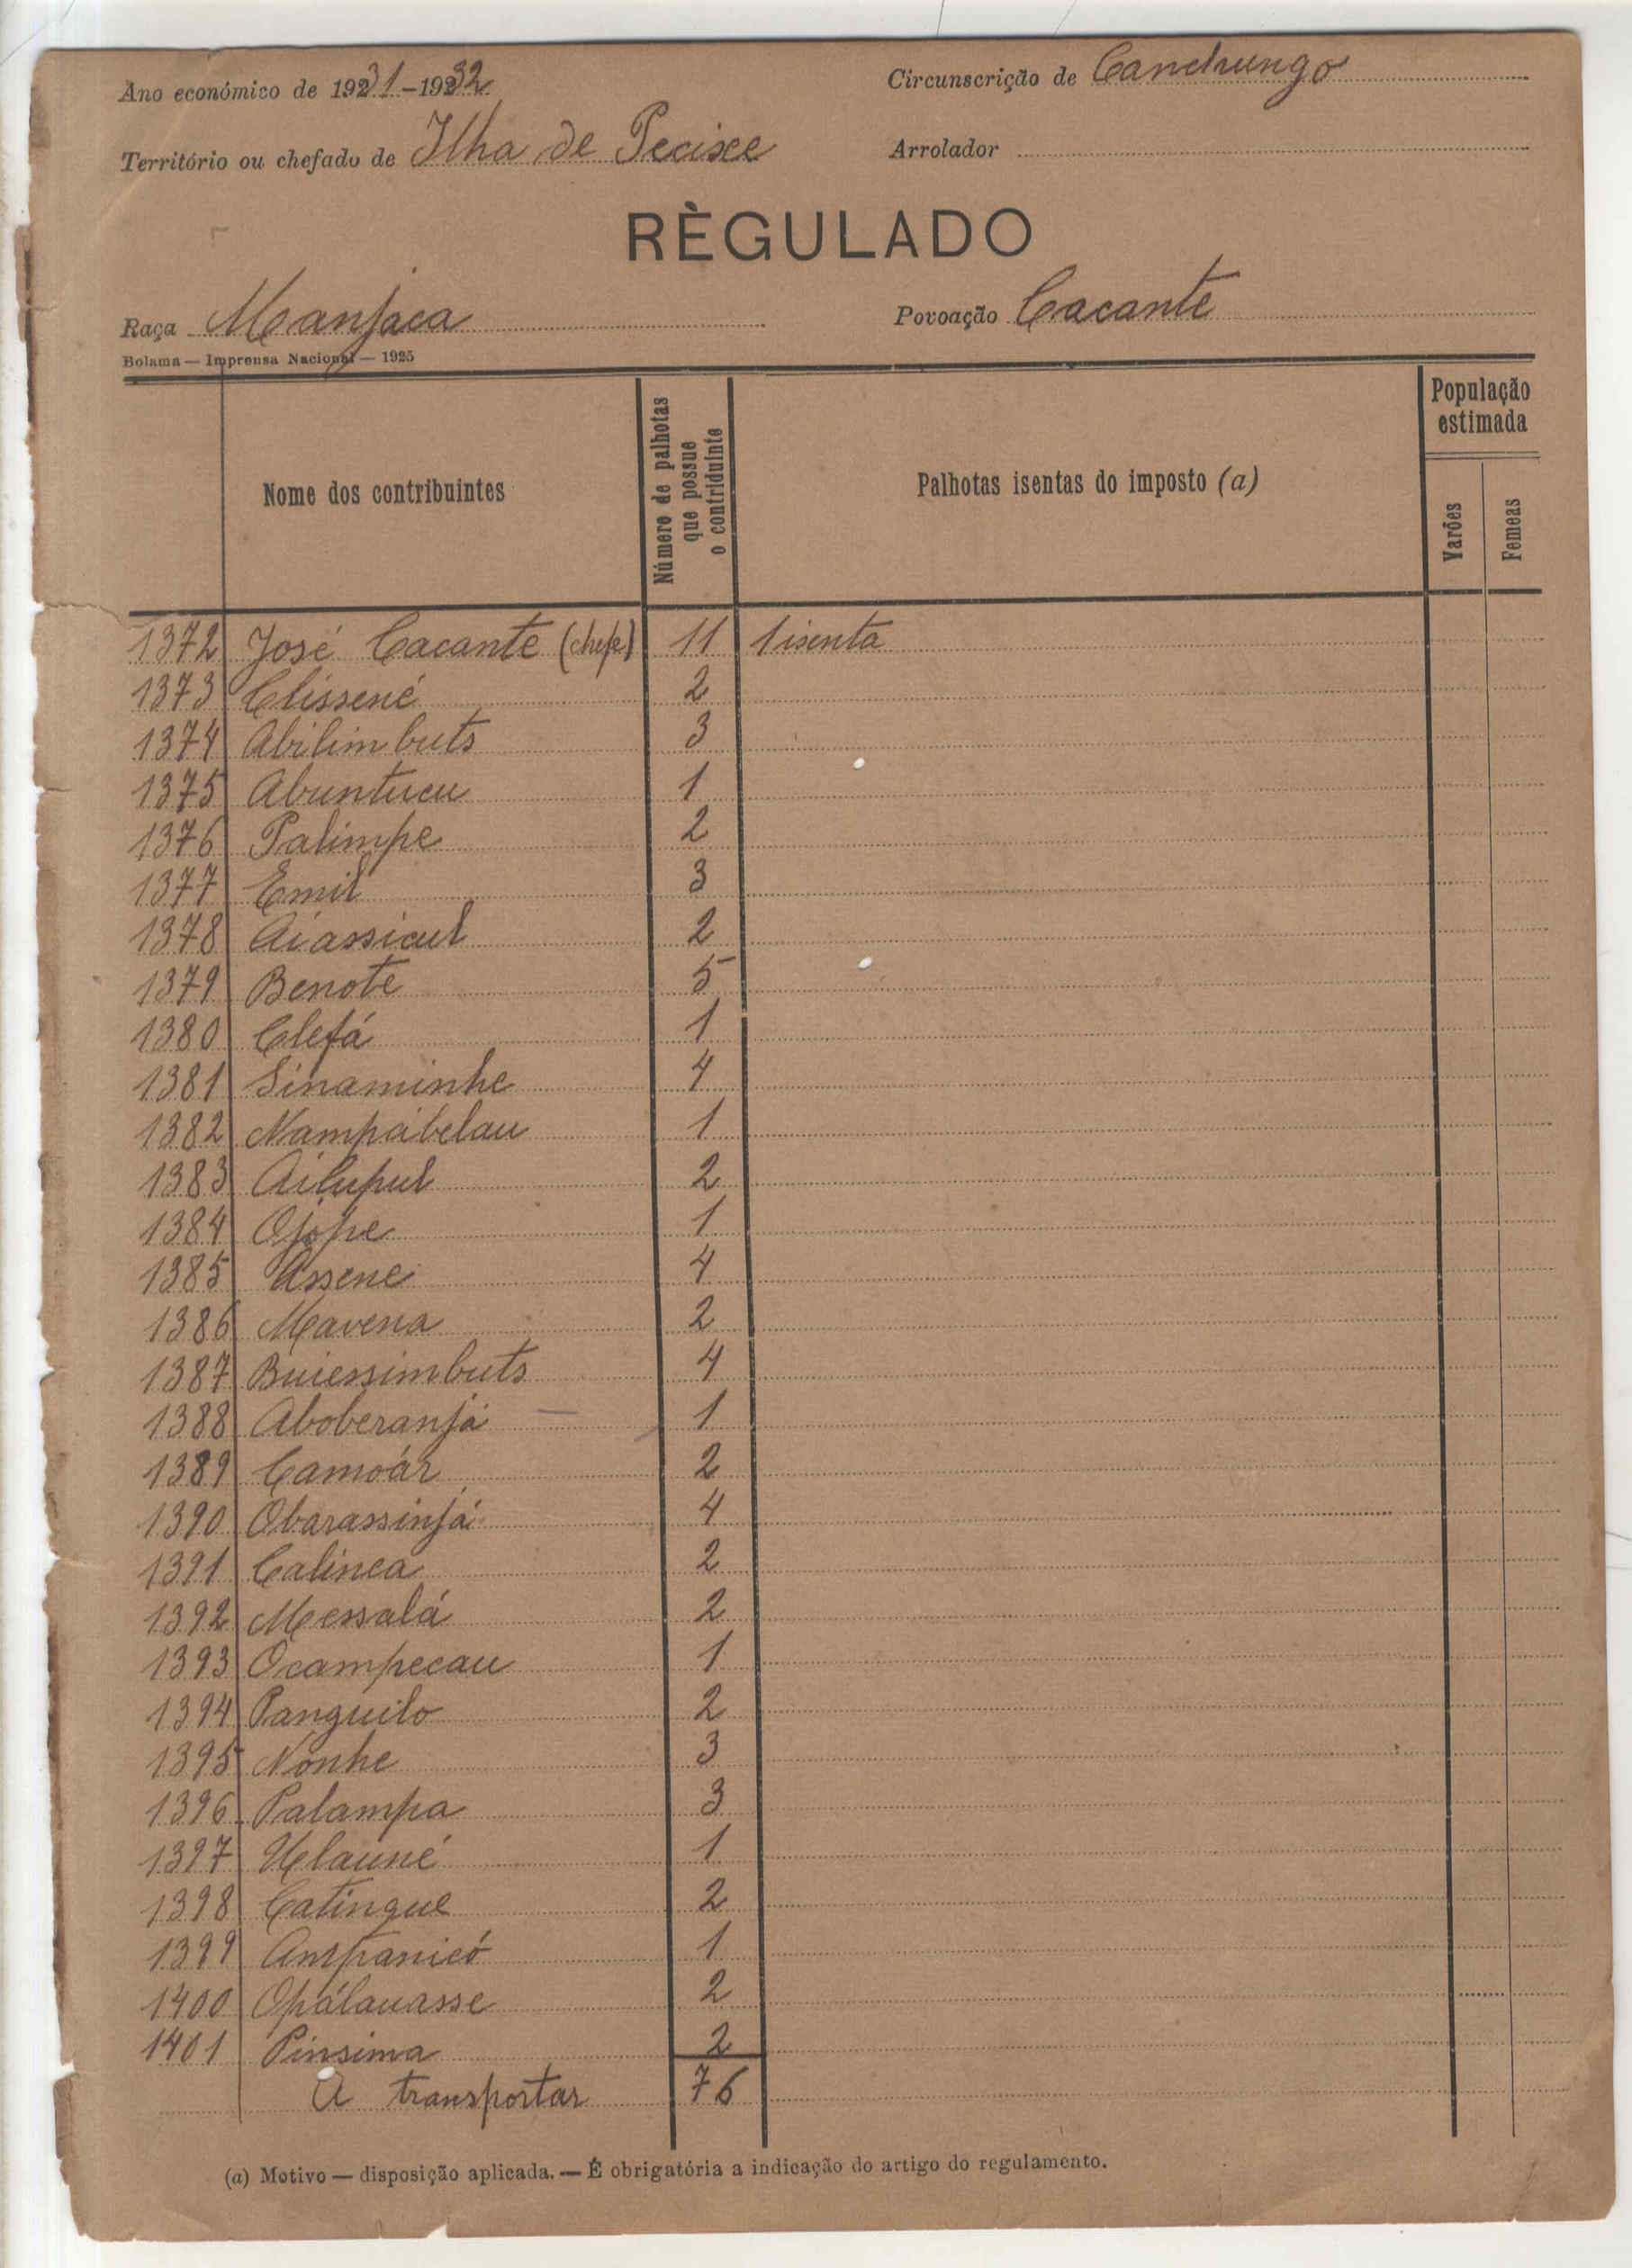 Ano económico de 1931-1932
Circunscrição de Canchungo
Território ou chefado de Ilha de Pecixe
Arrolador
RÈGULADO
Raça Manjaca
Povoação Cacante
Bolama — Imprensa Nacional — 1925
Nome dos contribuintes
Número de palhotas que possue o contriduinte
Palhotas isentas do imposto (a)
População estimada
Varões
Femeas
1372 José Cacante (chefe) 11 1 isenta
1373 Clissené 2
1374 Abilimbuts 3
1375 Abuntucu 1
1376 Palimpe 2
1377 Emil 3
1378 Aiassicul 2
1379 Benote 5
1380 Clefá 1
1381 Sinaminhe 4
1382 Nampábelau 1
1383 Ailupul 2
1384 Ojope 1
1385 Assene 4
1386 Mavena 2
1387 Buiessimbuts 4
1388 Aboberanjá 1
1389 Camoár 2
1390 Obarassinjá 4
1391 Calinca 2
1392 Messalá 2
1393 Ocampecau 1
1394 Panguilo 2
1395 Nonhe 3
1396 Palampa 3
1397 Ulauné 1
1398 Catingue 2
1399 Ampanicó 1
1400 Opálauasse 2
1401 Pinsima 2
A transportar 76
(a) Motivo — disposição aplicada. — É obrigatória a indicação do artigo do regulamento.